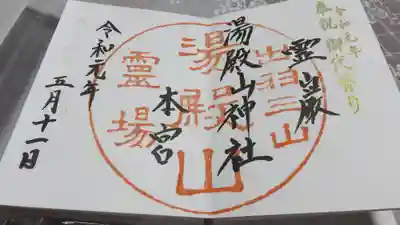 令和元年
奉祝 御代
霊巌
湯殿山神社
本宮
令和元年
五月十一日
出羽三山
湯殿山
霊場